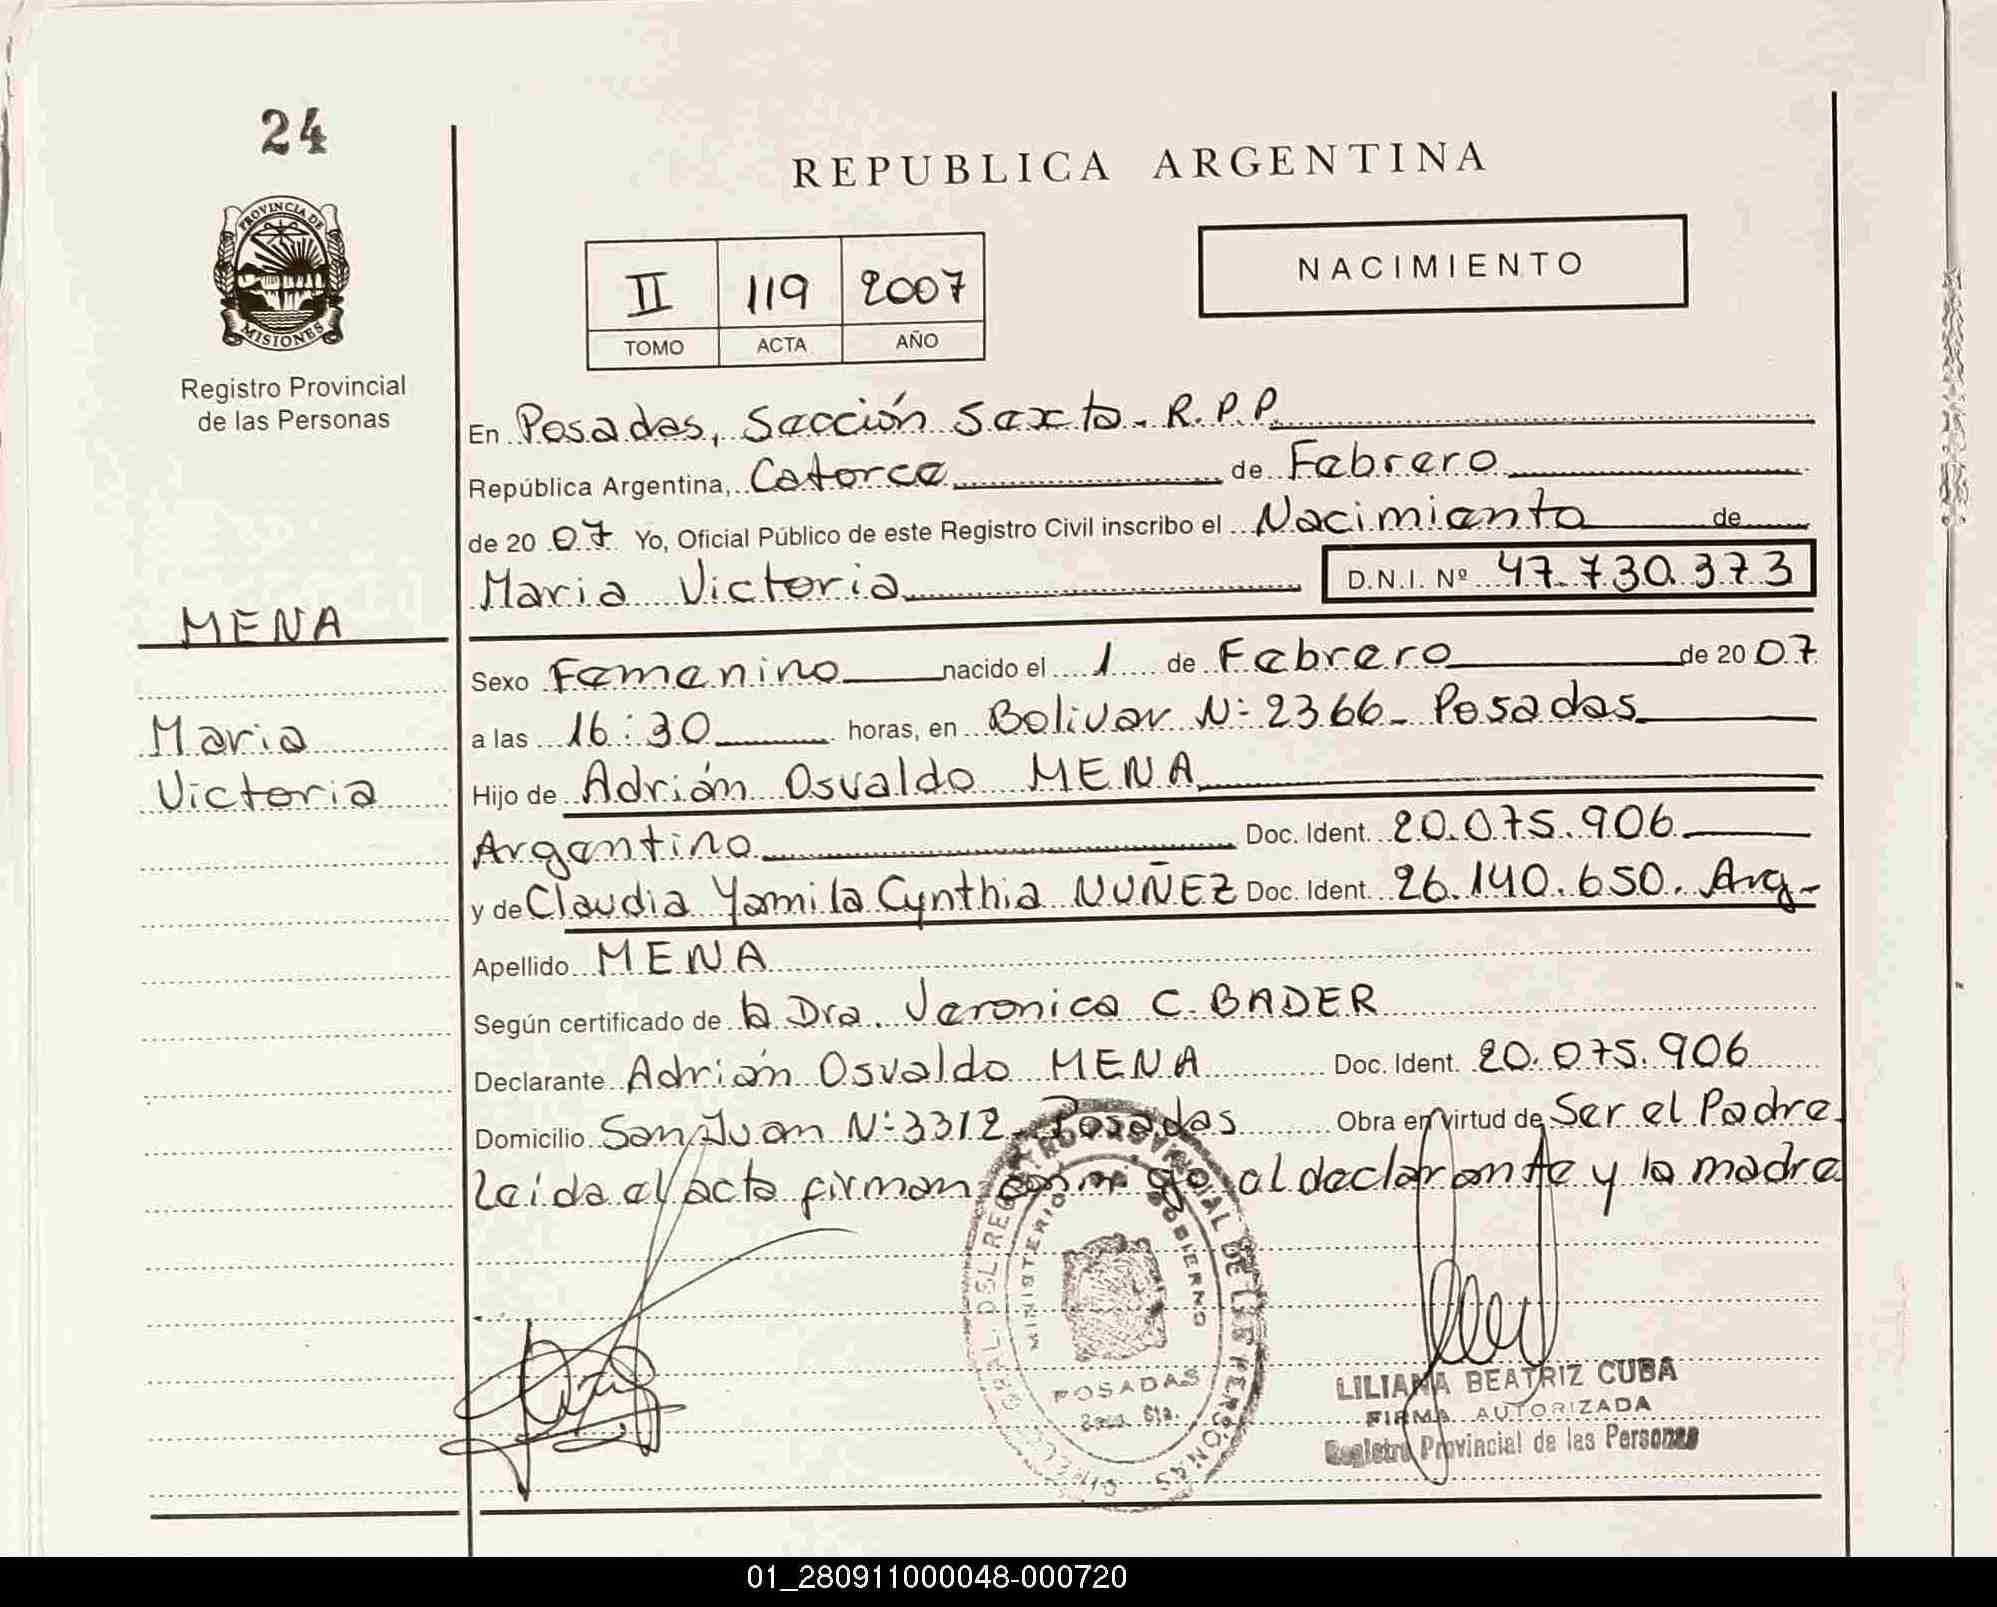 24
REPUBLICA ARGENTINA
PROVINCIA DE
MISIONES
Registro Provincial
de las Personas
NACIMIENTO
II 119 2007
TOMO ACTA AÑO
En Posadas, Sección Sexta. R.P.P.
República Argentina, Catorce de Febrero
de 2007 Yo, Oficial Público de este Registro Civil inscribo el Nacimiento de
Maria Victoria D.N.I. Nº 47.730.373
MENA
Maria
Victoria
Sexo Femenino nacido el 1 de Febrero de 2007
a las 16:30 horas, en Bolivar Nº 2366 - Posadas
Hijo de Adrián Osvaldo MENA
Argentino Doc. Ident. 20.075.906
y de Claudia Yamila Cynthia NUÑEZ Doc. Ident. 26.140.650. Arg-
Apellido MENA
Según certificado de la Dra. Veronica C. BADER
Declarante Adrián Osvaldo MENA Doc. Ident. 20.075.906
Domicilio San Juan Nº 3312 - Posadas Obra en virtud de Ser el Padre.
Leida el acta firman conmigo el declarante y la madre
MINISTERIO GOBIERNO
POSADAS
LILIANA BEATRIZ CUBA
FIRMA AUTORIZADA
Registro Provincial de las Personas
01_280911000048-000720